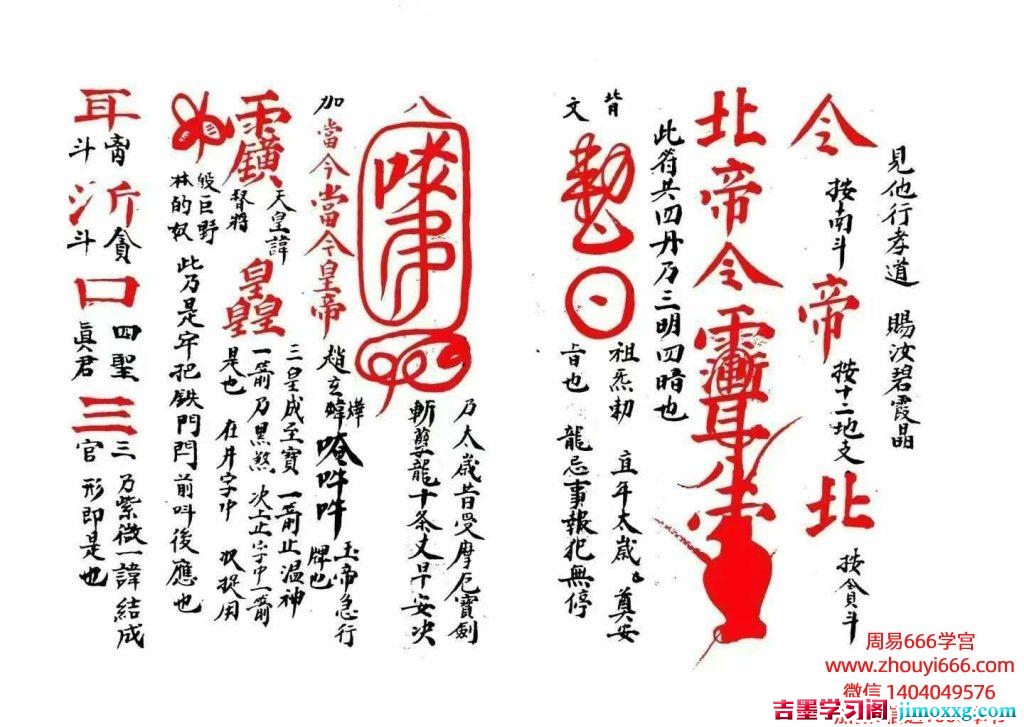 見他行孝道 賜汝碧霞晶
令 按南斗 帝 按十二地支 北 按貪斗
北帝令
此符共四丹乃三明四暗也
背文
祖炁勅 直年太歲 真安
旨也 龍忌事報犯無停
乃太歲昔受摩厄寶劍
斬孽龍十条丈早安决
八
加 當今當今皇帝 趙玄
玉帝急行
牌也
天皇諱
督將
三皇成至寶 一箭止温神
一箭乃黑煞 次上止字中一箭
是也 在井字中 收捉用
皇皇皇
般巨野
林的奴
此乃是牢把鉄門閂前叫後應也
耳 斗 沂 貪斗 口 四聖真君 三 三官
乃紫微一諱結成
形即是也
周易666学宫
www.zhouyi666.com
微信 1404049576
吉墨学习阁 jimoxxg.com